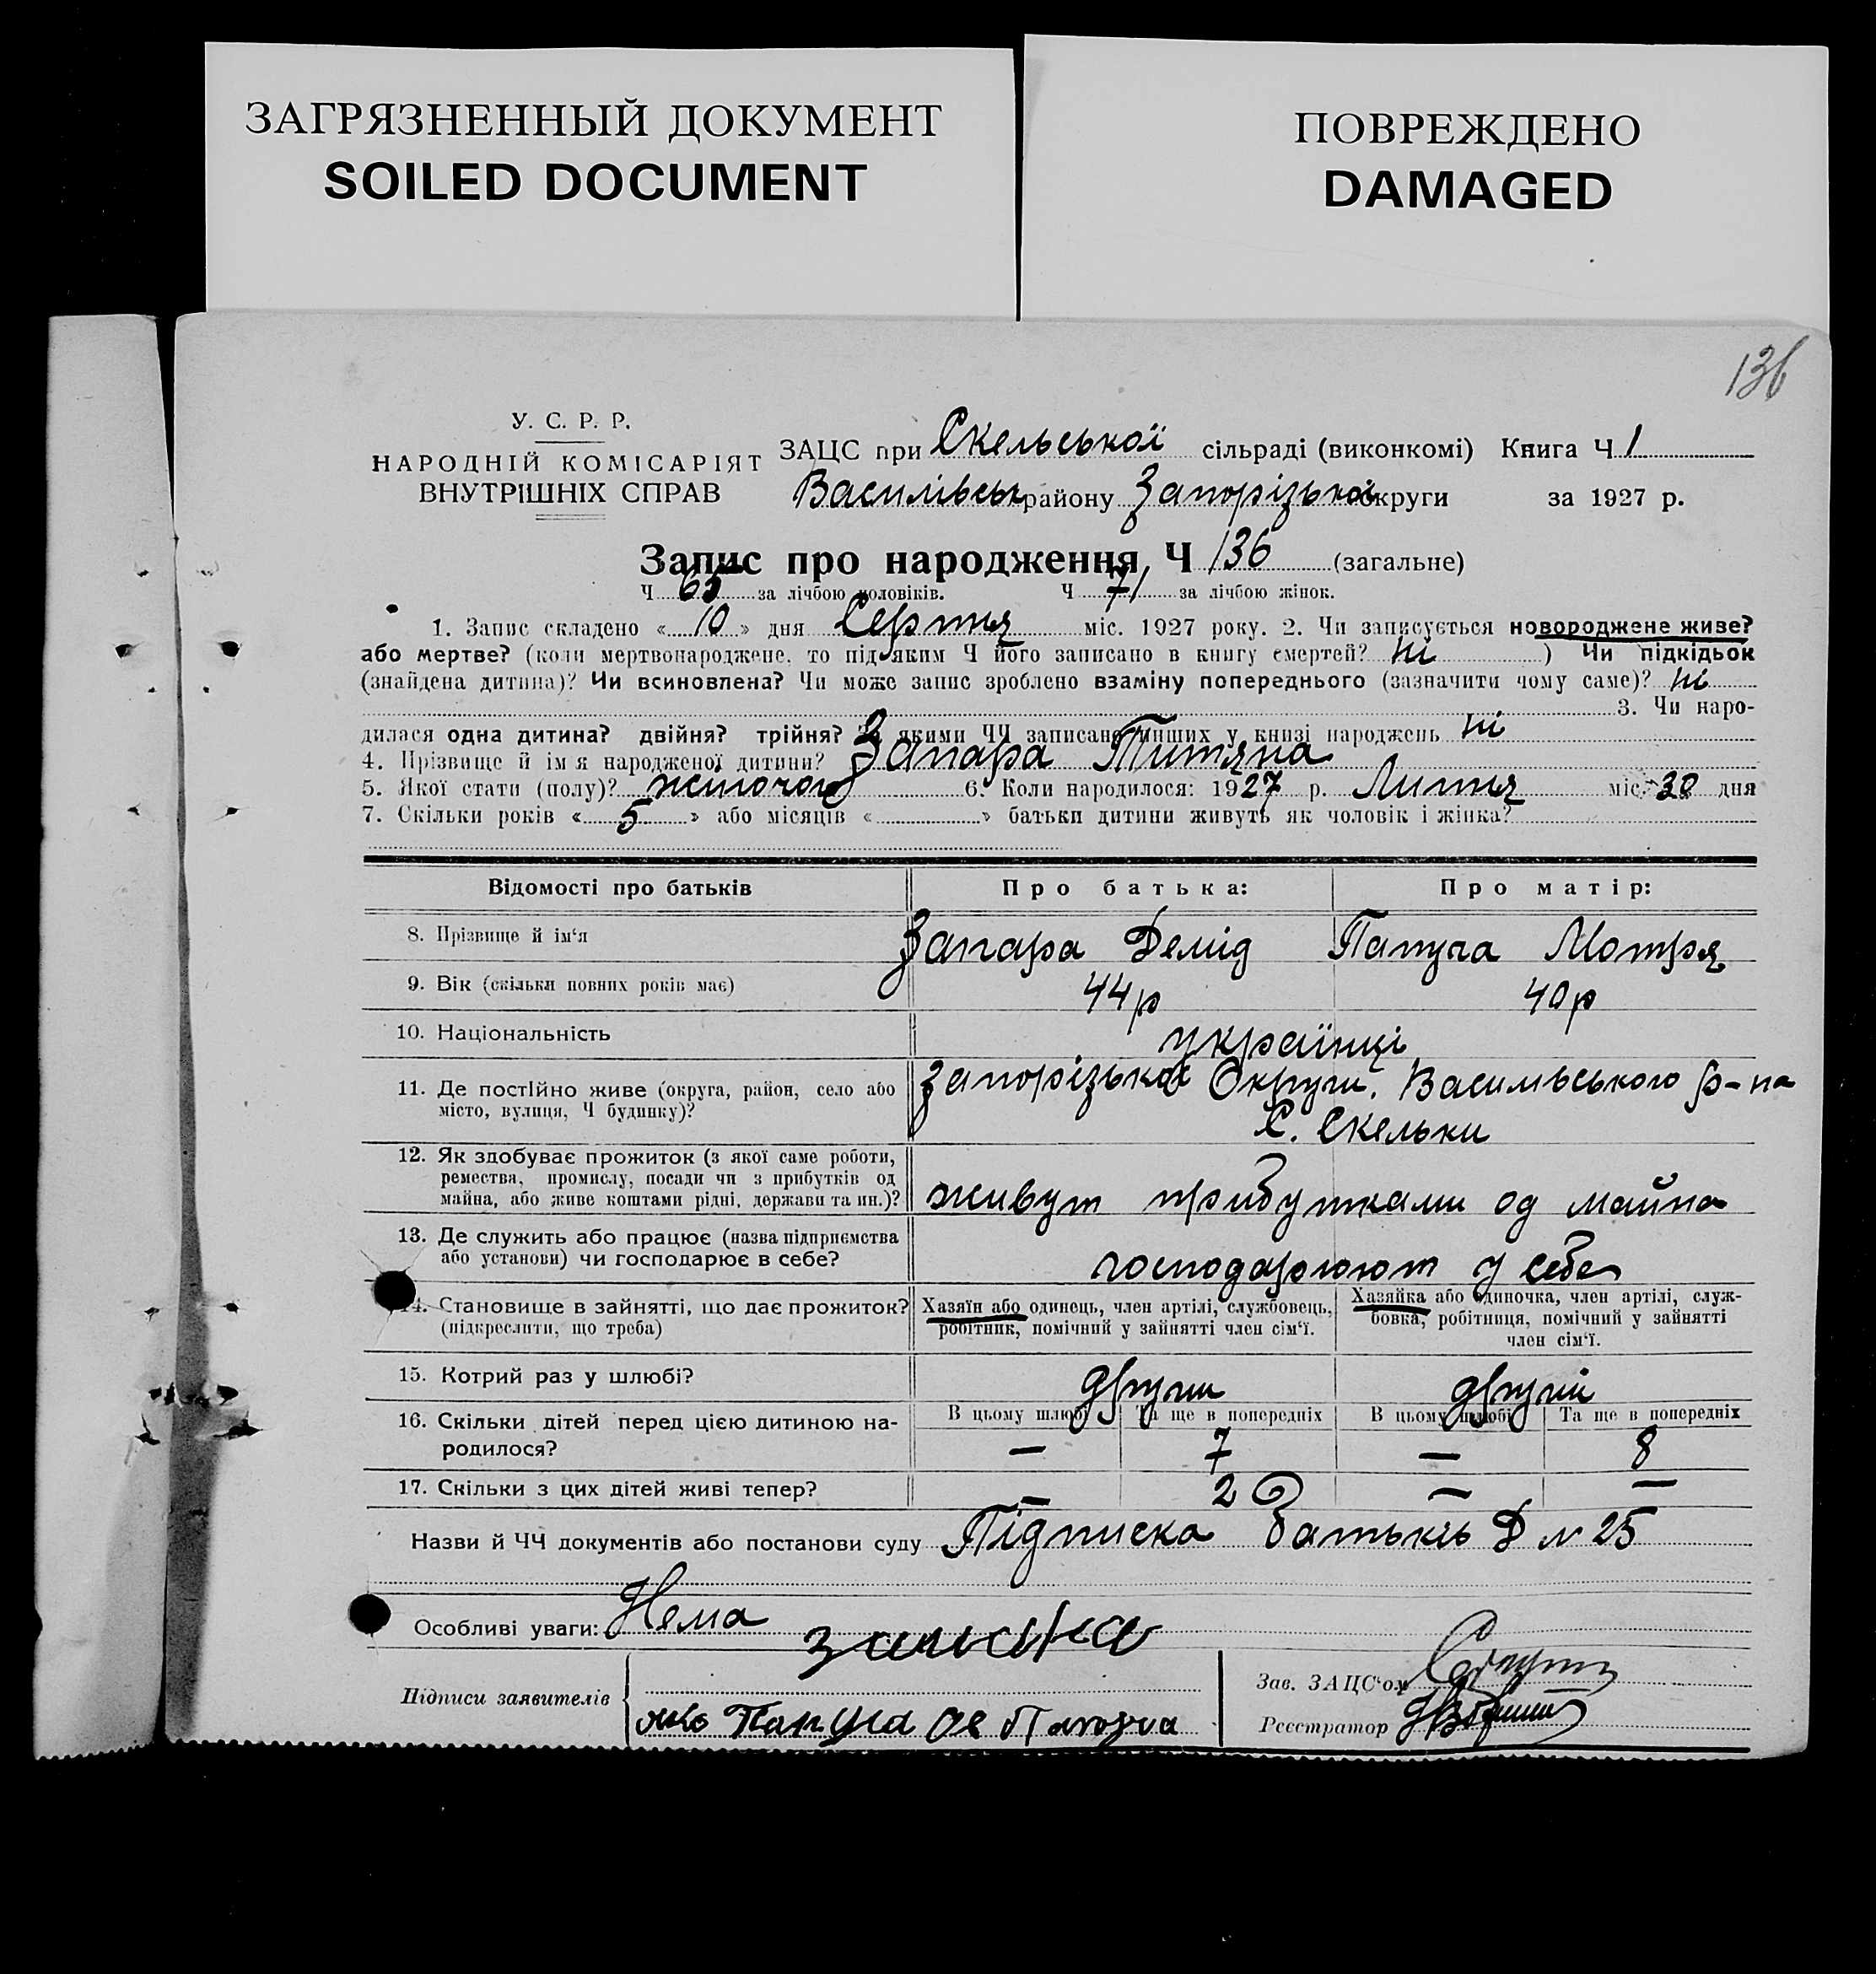 ЗАГРЯЗНЕННЫЙ ДОКУМЕНТ
SOILED DOCUMENT
ПОВРЕЖДЕНО
DAMAGED
136
У. С. Р. Р.
НАРОДНІЙ КОМІСАРІЯТ
ВНУТРІШНІХ СПРАВ
ЗАЦС при Скельської сільраді (виконкомі) Книга Ч 1
Василівськ району Запорізької округи за 1927 р.
Запис про народження Ч 136 (загальне)
Ч 65 за лічбою чоловіків. Ч 71 за лічбою жінок.
1. Запис складено « 10 » дня Серпня міс. 1927 року. 2. Чи записується новороджене живе?
або мертве? (коли мертвонароджене, то під яким Ч його записано в книгу смертей? ні ) Чи підкідьок
(знайдена дитина)? Чи всиновлена? Чи може запис зроблено взаміну попереднього (зазначити чому саме)? ні
3. Чи наро-
дилася одна дитина? двійня? трійня? За якими ЧЧ записано инших у книзі народжень ні
4. Прізвище й ім'я народженої дитини? Запара Титяна
5. Якої стати (полу)? жіночого 6. Коли народилося: 1927 р. Липня міс. 30 дня
7. Скільки років « 5 » або місяців « » батьки дитини живуть як чоловік і жінка?
Відомості про батьків Про батька: Про матір:
8. Прізвище й ім'я Запара Демід Папуча Мотря
9. Вік (скільки повних років має) 44 р 40 р
10. Національність українці
11. Де постійно живе (округа, район, село або
місто, вулиця, Ч будинку)?
Запорізької Округи. Василівського р-на
С. Скельки
12. Як здобуває прожиток (з якої саме роботи,
ремества, промислу, посади чи з прибутків од
майна, або живе коштами рідні, держави та ин.)?
живут прибутками од майна
13. Де служить або працює (назва підприємства
або установи) чи господарює в себе?
господарюют у себе
14. Становище в зайнятті, що дає прожиток?
(підкреслити, що треба)
Хазяїн або одинець, член артілі, службовець,
робітник, помічний у зайнятті член сім'ї.
Хазяйка або одиночка, член артілі, служ-
бовка, робітниця, помічний у зайнятті
член сім'ї.
15. Котрий раз у шлюбі? другий другий
16. Скільки дітей перед цією дитиною на-
родилося?
В цьому шлюбі Та ще в попередніх В цьому шлюбі Та ще в попередніх
— 7 — 8
17. Скільки з цих дітей живі тепер? — 2 — —
Назви й ЧЧ документів або постанови суду Підписка батьків Д № 25
Особливі уваги: Нема
Підписи заявителів
Зав. ЗАЦС'ом
Реєстратор